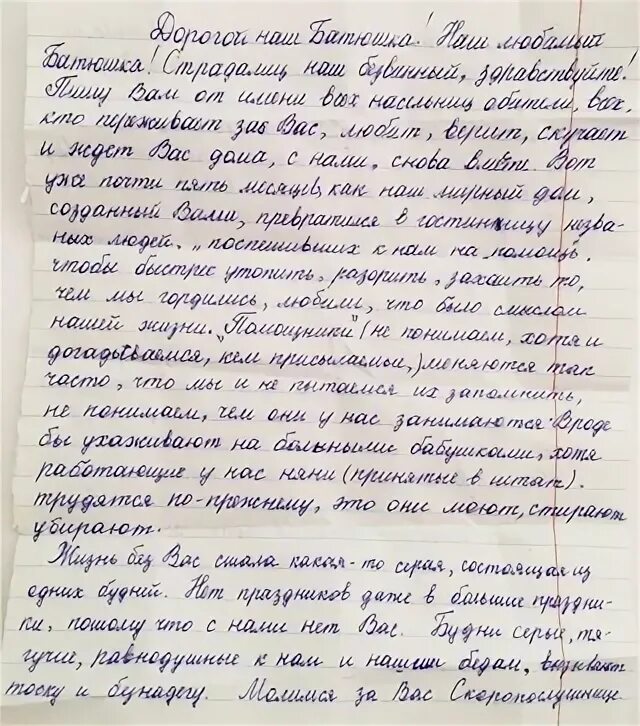 Дорогой наш Батюшка! Наш любимый
Батюшка! Страдалиц наш безвинный, здравствуйте!
Пишу Вам от имени всех насельниц обители, всех,
кто переживает за Вас, любит, верит, скучает
и ждет Вас дома, с нами, снова вместе. Вот
уже почти пять месяцев, как наш мирный дом,
созданный Вами, превратился в гостинницу незва-
ных людей, „поспешивших к нам на помощь",
чтобы быстрее утопить, разорить, захаить то,
чем мы гордились, любили, что было смыслом
нашей жизни. „Помощники" (не понимаем, хотя и
догадываемся, кем присылаемы,) меняются так
часто, что мы и не пытаемся их запомнить,
не понимаем, чем они у нас занимаются. Вроде
бы ухаживают на больными бабушками, хотя
работающие у нас няни (принятые в штат)
трудятся по-прежнему, это они моют, стирают
убирают.
Жизнь без Вас стала какая-то серая, состоящая из
одних будней. Нет праздников даже в большие праздни-
ки, потому что с нами нет Вас. Будни серые, тя-
гучие, равнодушные к нам и нашим бедам, вызывают
тоску и безнадегу. Молимся за Вас Скоропослушнице